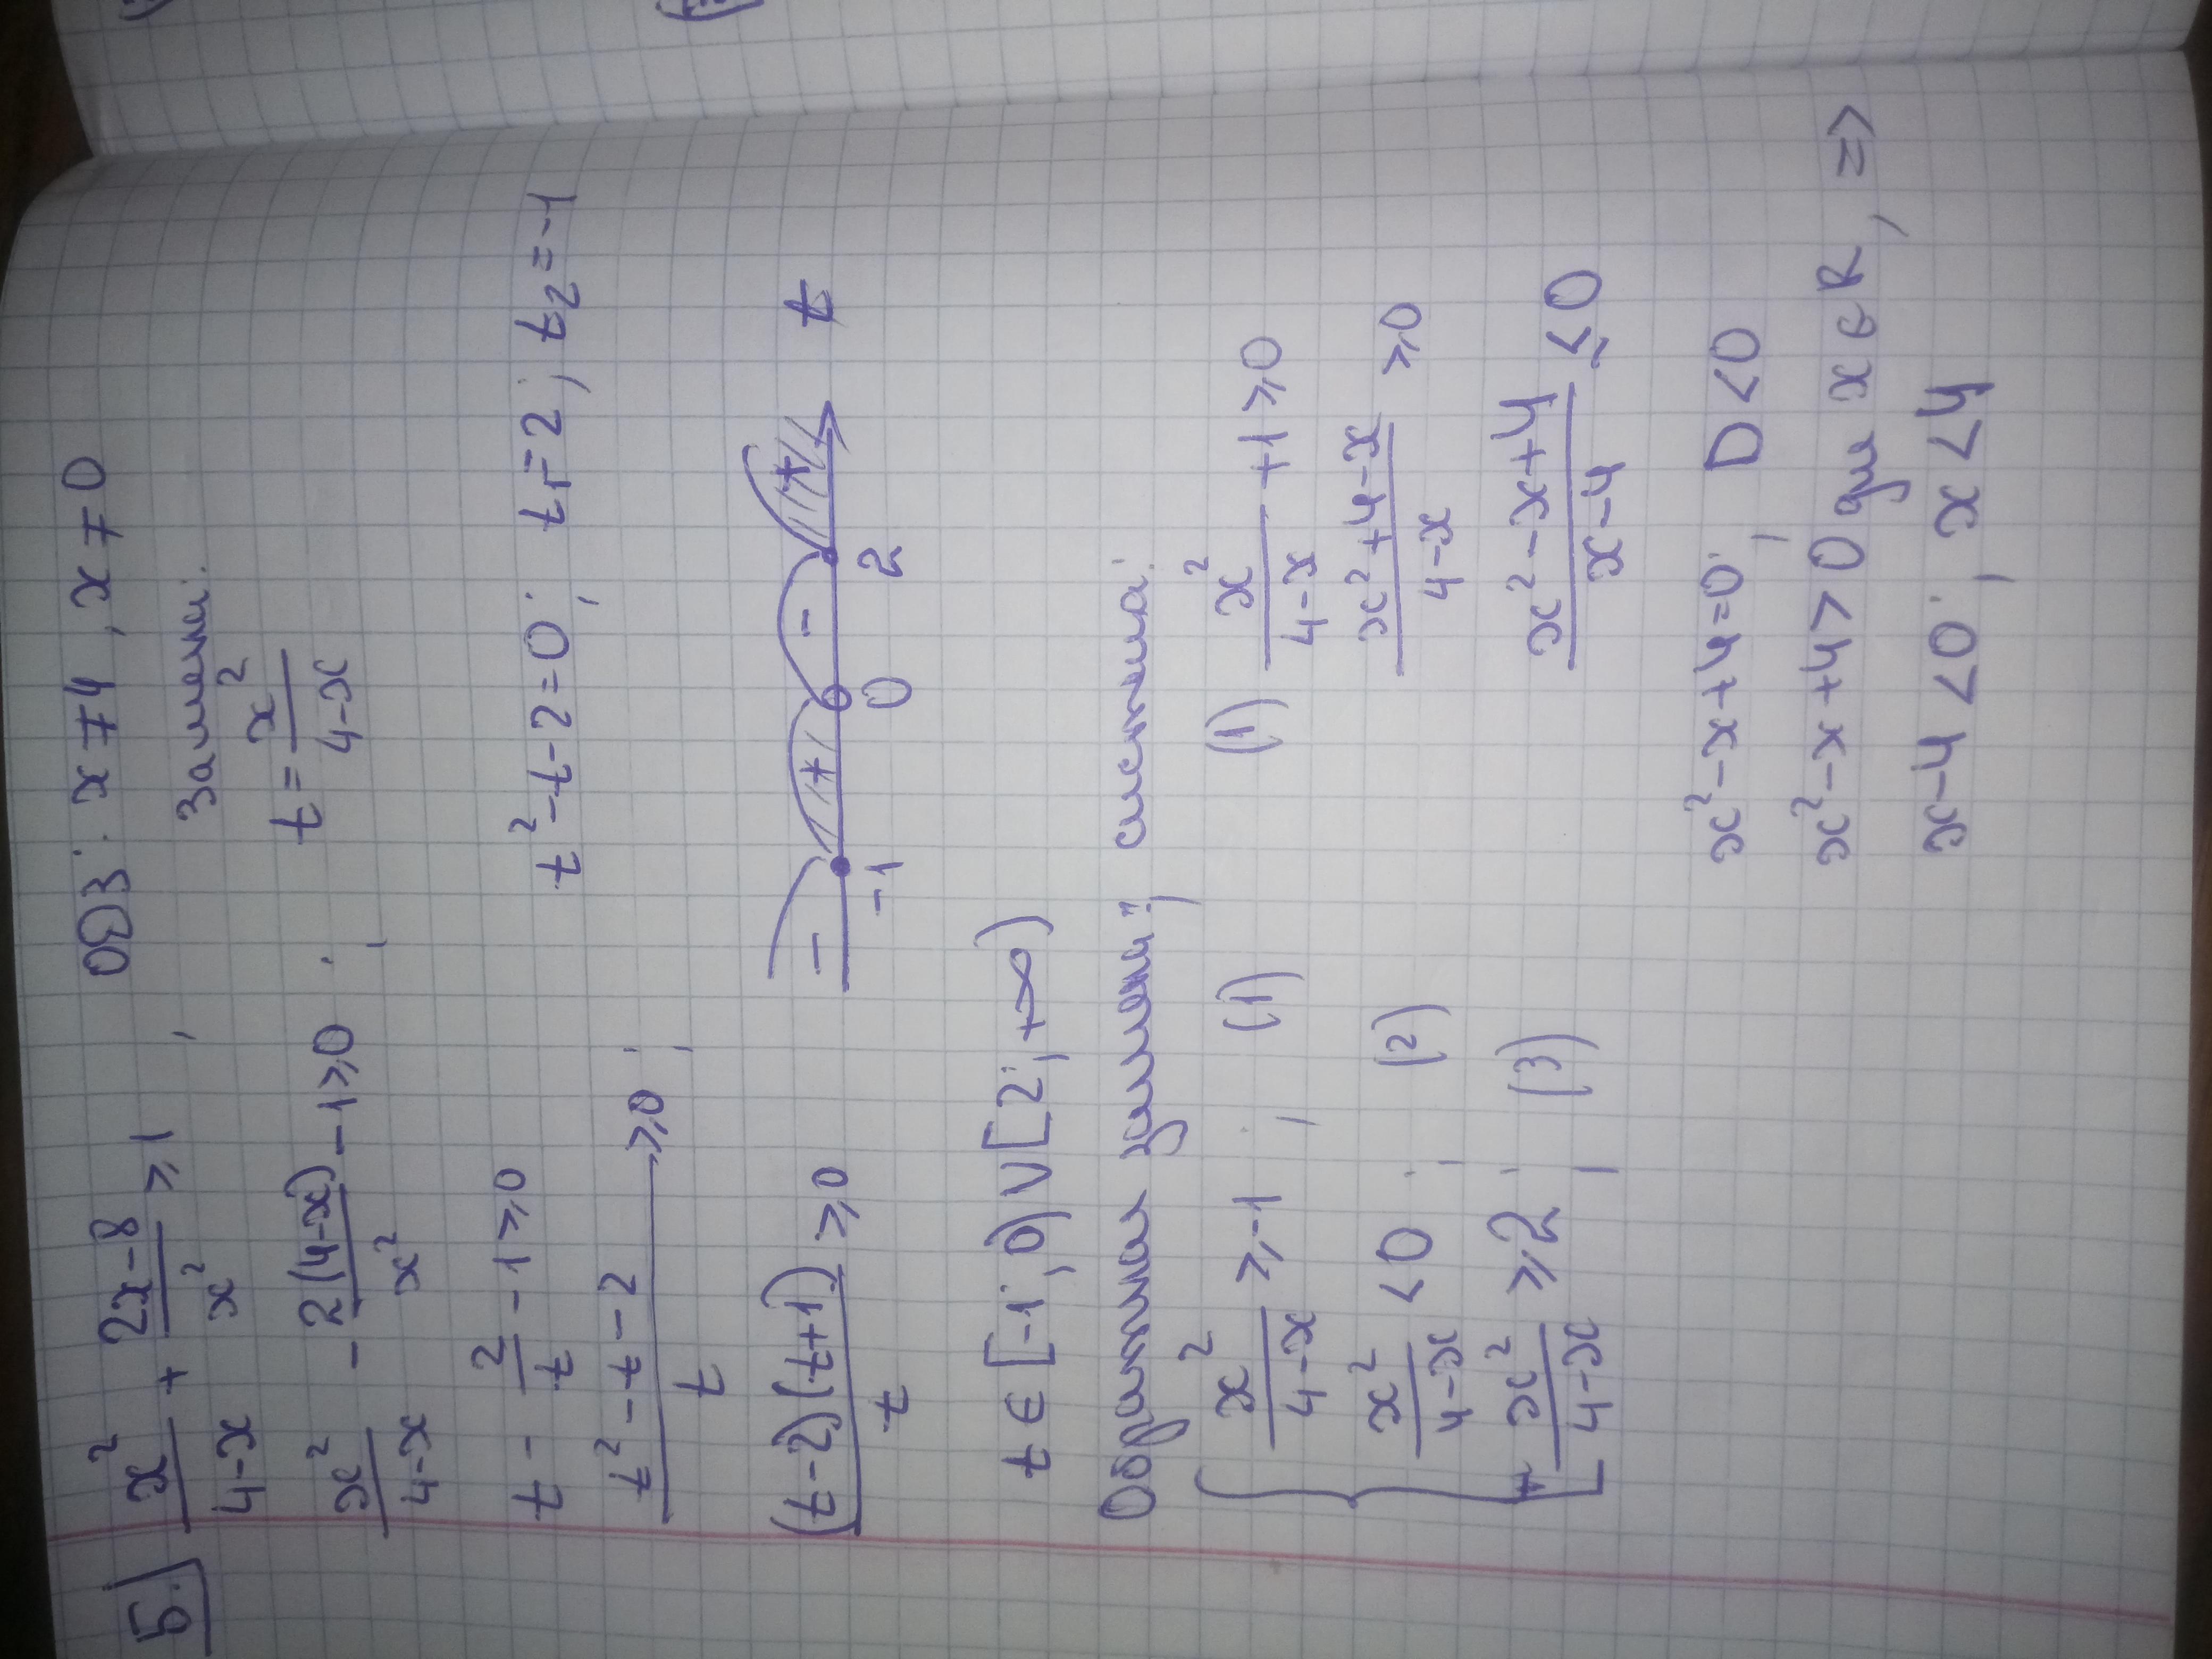 5.) x²/(4-x) + (2x-8)/x² ≥ 1 ; ОДЗ: x ≠ 4, x ≠ 0
Замена:
x²/(4-x) - 2(4-x)/x² - 1 ≥ 0 ; t = x²/(4-x)
t - 2/t - 1 ≥ 0
t² - t - 2 = 0 ; t₁ = 2 ; t₂ = -1
(t² - t - 2)/t ≥ 0 ;
(t-2)(t+1)/t ≥ 0
- + - + t
-1 0 2
t ∈ [-1; 0) ∪ [2; +∞)
Обратная замена; система:
x²/(4-x) ≥ -1 ; (1)
x²/(4-x) < 0 ; (2)
x²/(4-x) ≥ 2 ; (3)
(1) x²/(4-x) + 1 ≥ 0
(x² + 4 - x)/(4-x) ≥ 0
(x² - x + 4)/(x-4) ≤ 0
x² - x + 4 = 0 ; D < 0
x² - x + 4 > 0 для x ∈ R, =>
x - 4 < 0 ; x < 4